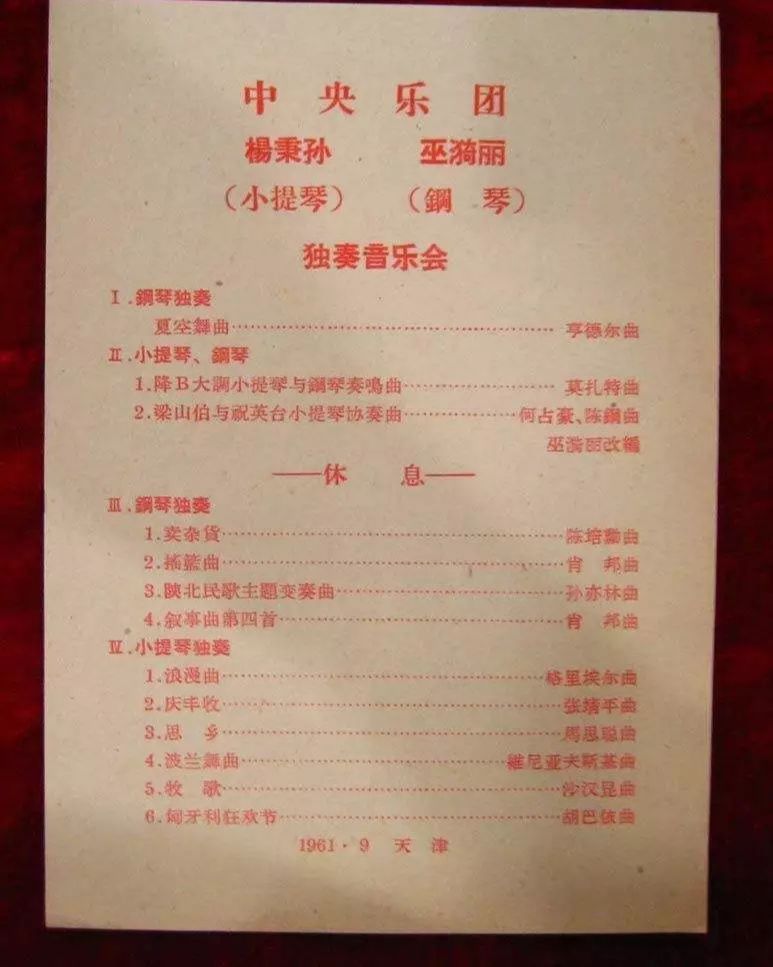 中央乐团
楊秉孙 巫漪丽
（小提琴） （鋼 琴）
独奏音乐会
Ⅰ.鋼琴独奏
夏空舞曲………………………………亨德尔曲
Ⅱ.小提琴、鋼琴
1.降B大調小提琴与鋼琴奏鳴曲………………莫扎特曲
2.梁山伯与祝英台小提琴协奏曲…………何占豪、陈鋼曲
巫漪丽改編
——休 息——
Ⅲ.鋼琴独奏
1.卖杂貨………………………………陈培勳曲
2.搖籃曲………………………………肖 邦曲
3.陝北民歌主題变奏曲……………………孙亦林曲
4.叙事曲第四首…………………………肖 邦曲
Ⅳ.小提琴独奏
1.浪漫曲………………………………格里埃尔曲
2.庆丰收………………………………张靖平曲
3.思 乡………………………………馬思聪曲
4.波兰舞曲…………………………維尼亚夫斯基曲
5.牧 歌………………………………沙汉昆曲
6.匈牙利狂欢节…………………………胡巴依曲
1961·9 天 津